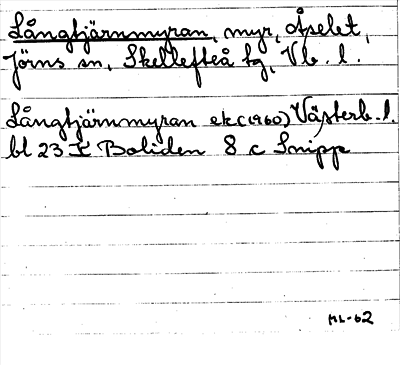 Långtjärnmyran, myr, Åselet,
Jörns sn, Skellefteå tg, Vb. l.
Långtjärnmyran ek (1960) Västerb. l.
bl 23 K Boliden 8 c Snipp
HL-62